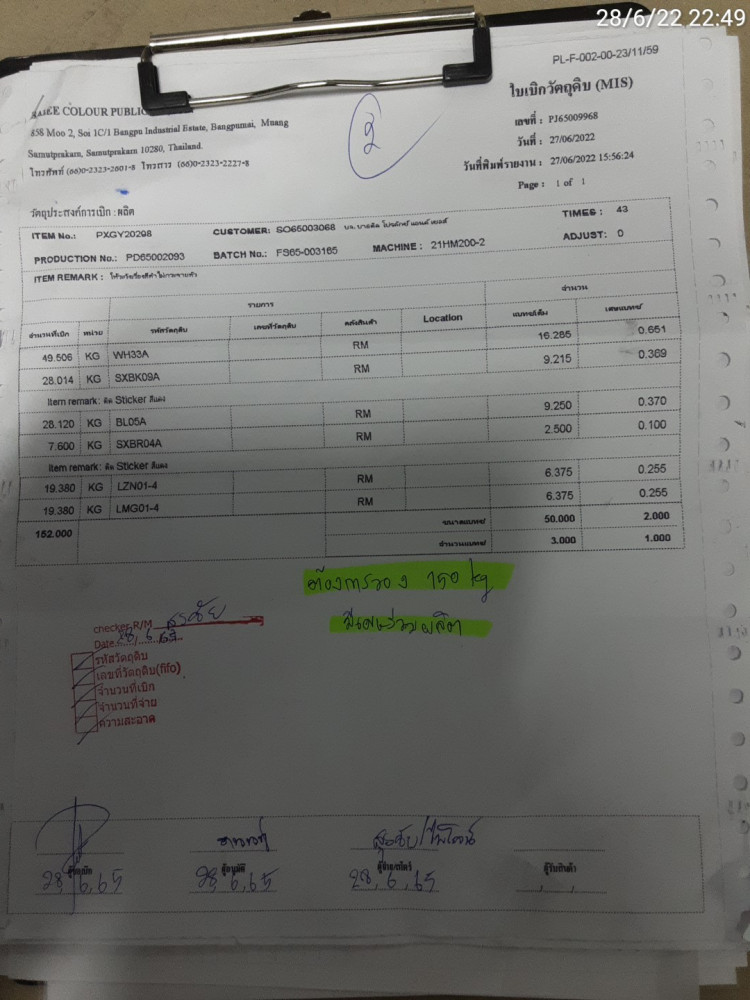 28/6/22 22:49
PL-F-002-00-23/11/59
COLOUR PUBLIC
ใบเบิกวัตถุดิบ (MIS)
858 Moo 2, Soi 1C/1 Bangpu Industrial Estate, Bangpumai, Muang
Samutprakarn, Samutprakarn 10280, Thailand.
โทรศัพท์ (66)0-2323-2601-8 โทรสาร (66)0-2323-2227-8
เลขที่ : PJ65009968
วันที่ : 27/06/2022
วันที่พิมพ์รายงาน : 27/06/2022 15:56:24
Page : 1 of 1
2
วัตถุประสงค์การเบิก : ผลิต
ITEM No.: PXGY20298 CUSTOMER: SO65003068 TIMES : 43
PRODUCTION No.: PD65002093 BATCH No.: FS65-003165 MACHINE : 21HM200-2 ADJUST: 0
ITEM REMARK :
รายการ จำนวน
จำนวนที่เบิก หน่วย รหัสวัตถุดิบ เลขที่วัตถุดิบ คลังสินค้า Location แบทช์เต็ม เศษแบทช์
49.506 KG WH33A RM 16.285 0.651
28.014 KG SXBK09A RM 9.215 0.369
Item remark: ติด Sticker สีแดง
28.120 KG BL05A RM 9.250 0.370
7.600 KG SXBR04A RM 2.500 0.100
Item remark: ติด Sticker สีแดง
19.380 KG LZN01-4 RM 6.375 0.255
19.380 KG LMG01-4 RM 6.375 0.255
152.000 ขนาดแบทช์ 50.000 2.000
จำนวนแบทช์ 3.000 1.000
ต้องการของ 150 kg
checker R/M สุรชัย
Date 28, 6, 65
รหัสวัตถุดิบ
เลขที่วัตถุดิบ(fifo)
จำนวนที่เบิก
จำนวนที่จ่าย
ความสะอาด
ผู้อนุมัติ ผู้รับสินค้า
28, 6, 65 28, 6, 65 28, 6, 65